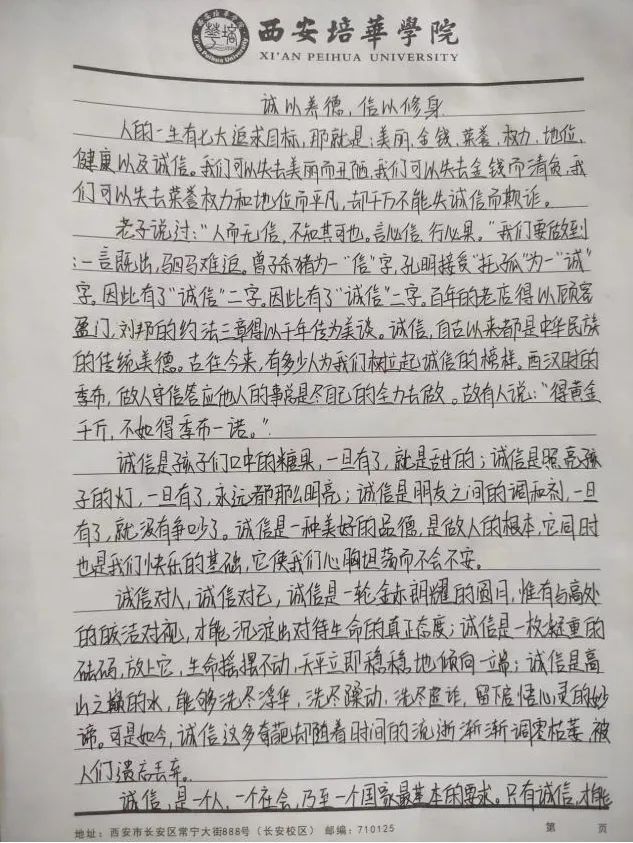 西安培華學院
XI'AN PEIHUA UNIVERSITY
诚以养德,信以修身
人的一生有七大追求目标,那就是:美丽、金钱、荣誉、权力、地位、
健康以及诚信。我们可以失去美丽而丑陋,我们可以失去金钱而清贫,我
们可以失去荣誉权力和地位而平凡,却千万不能失诚信而欺诈。
老子说过:“人而无信,不知其可也。言必信,行必果。”我们要做到
:一言既出,驷马难追。曾子杀猪为一“信”字,孔明接受“托孤”为一“诚”
字。因此有了“诚信”二字。因此有了“诚信”二字。百年的老店得以顾客
盈门,刘邦的约法三章得以千年传为美谈。诚信,自古以来都是中华民族
的传统美德。古往今来,有多少人为我们树立起诚信的榜样。西汉时的
季布,做人守信答应他人的事总是尽自己的全力去做。故有人说:“得黄金
千斤,不如得季布一诺。”
诚信是孩子们口中的糖果,一旦有了,就是甜的;诚信是照亮孩
子的灯,一旦有了,永远都那么明亮;诚信是朋友之间的调和剂,一旦
有了,就没有争吵了。诚信是一种美好的品德,是做人的根本,它同时
也是我们快乐的基础,它使我们心胸坦荡而不会不安。
诚信对人,诚信对己,诚信是一轮金赤朗耀的圆月,惟有与高处
的皎洁对视,才能沉淀出对待生命的真正态度;诚信是一枚凝重的
砝码,放上它,生命摇摆不动,天平立即稳稳地倾向一端;诚信是高
山之巅的水,能够洗尽浮华,洗尽躁动,洗尽虚诈,留下启悟心灵的妙
谛。可是如今,诚信这多奇葩却随着时间的流逝渐渐凋零枯萎,被
人们遗忘丢弃。
诚信,是一个人,一个社会,乃至一个国家最基本的要求。只有诚信,才能
地址:西安市长安区常宁大街888号(长安校区) 邮编:710125 第 页